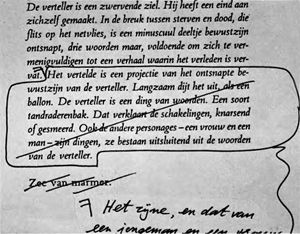 De verteller is een zwervende ziel. Hij heeft een eind aan
zichzelf gemaakt. In de breuk tussen sterven en dood, die
flits op het netvlies, is een minuscuul deeltje bewustzijn
ontsnapt, drie woorden maar, voldoende om zich te ver-
menigvuldigen tot een verhaal waarin het verleden is ver-
vat. Het vertelde is een projectie van het ontsnapte be-
wustzijn van de verteller. Langzaam dijt het uit, als een
ballon. De verteller is een ding van woorden. Een soort
tandraderenbak. Dat verklaart de schakelingen, knarsend
of gesmeerd. Ook de andere personages – een vrouw en een
man – zijn dingen, ze bestaan uitsluitend uit de woorden
van de verteller.
Zee van marmer.
Het zijne, en dat van
een jongeman en een vrouw